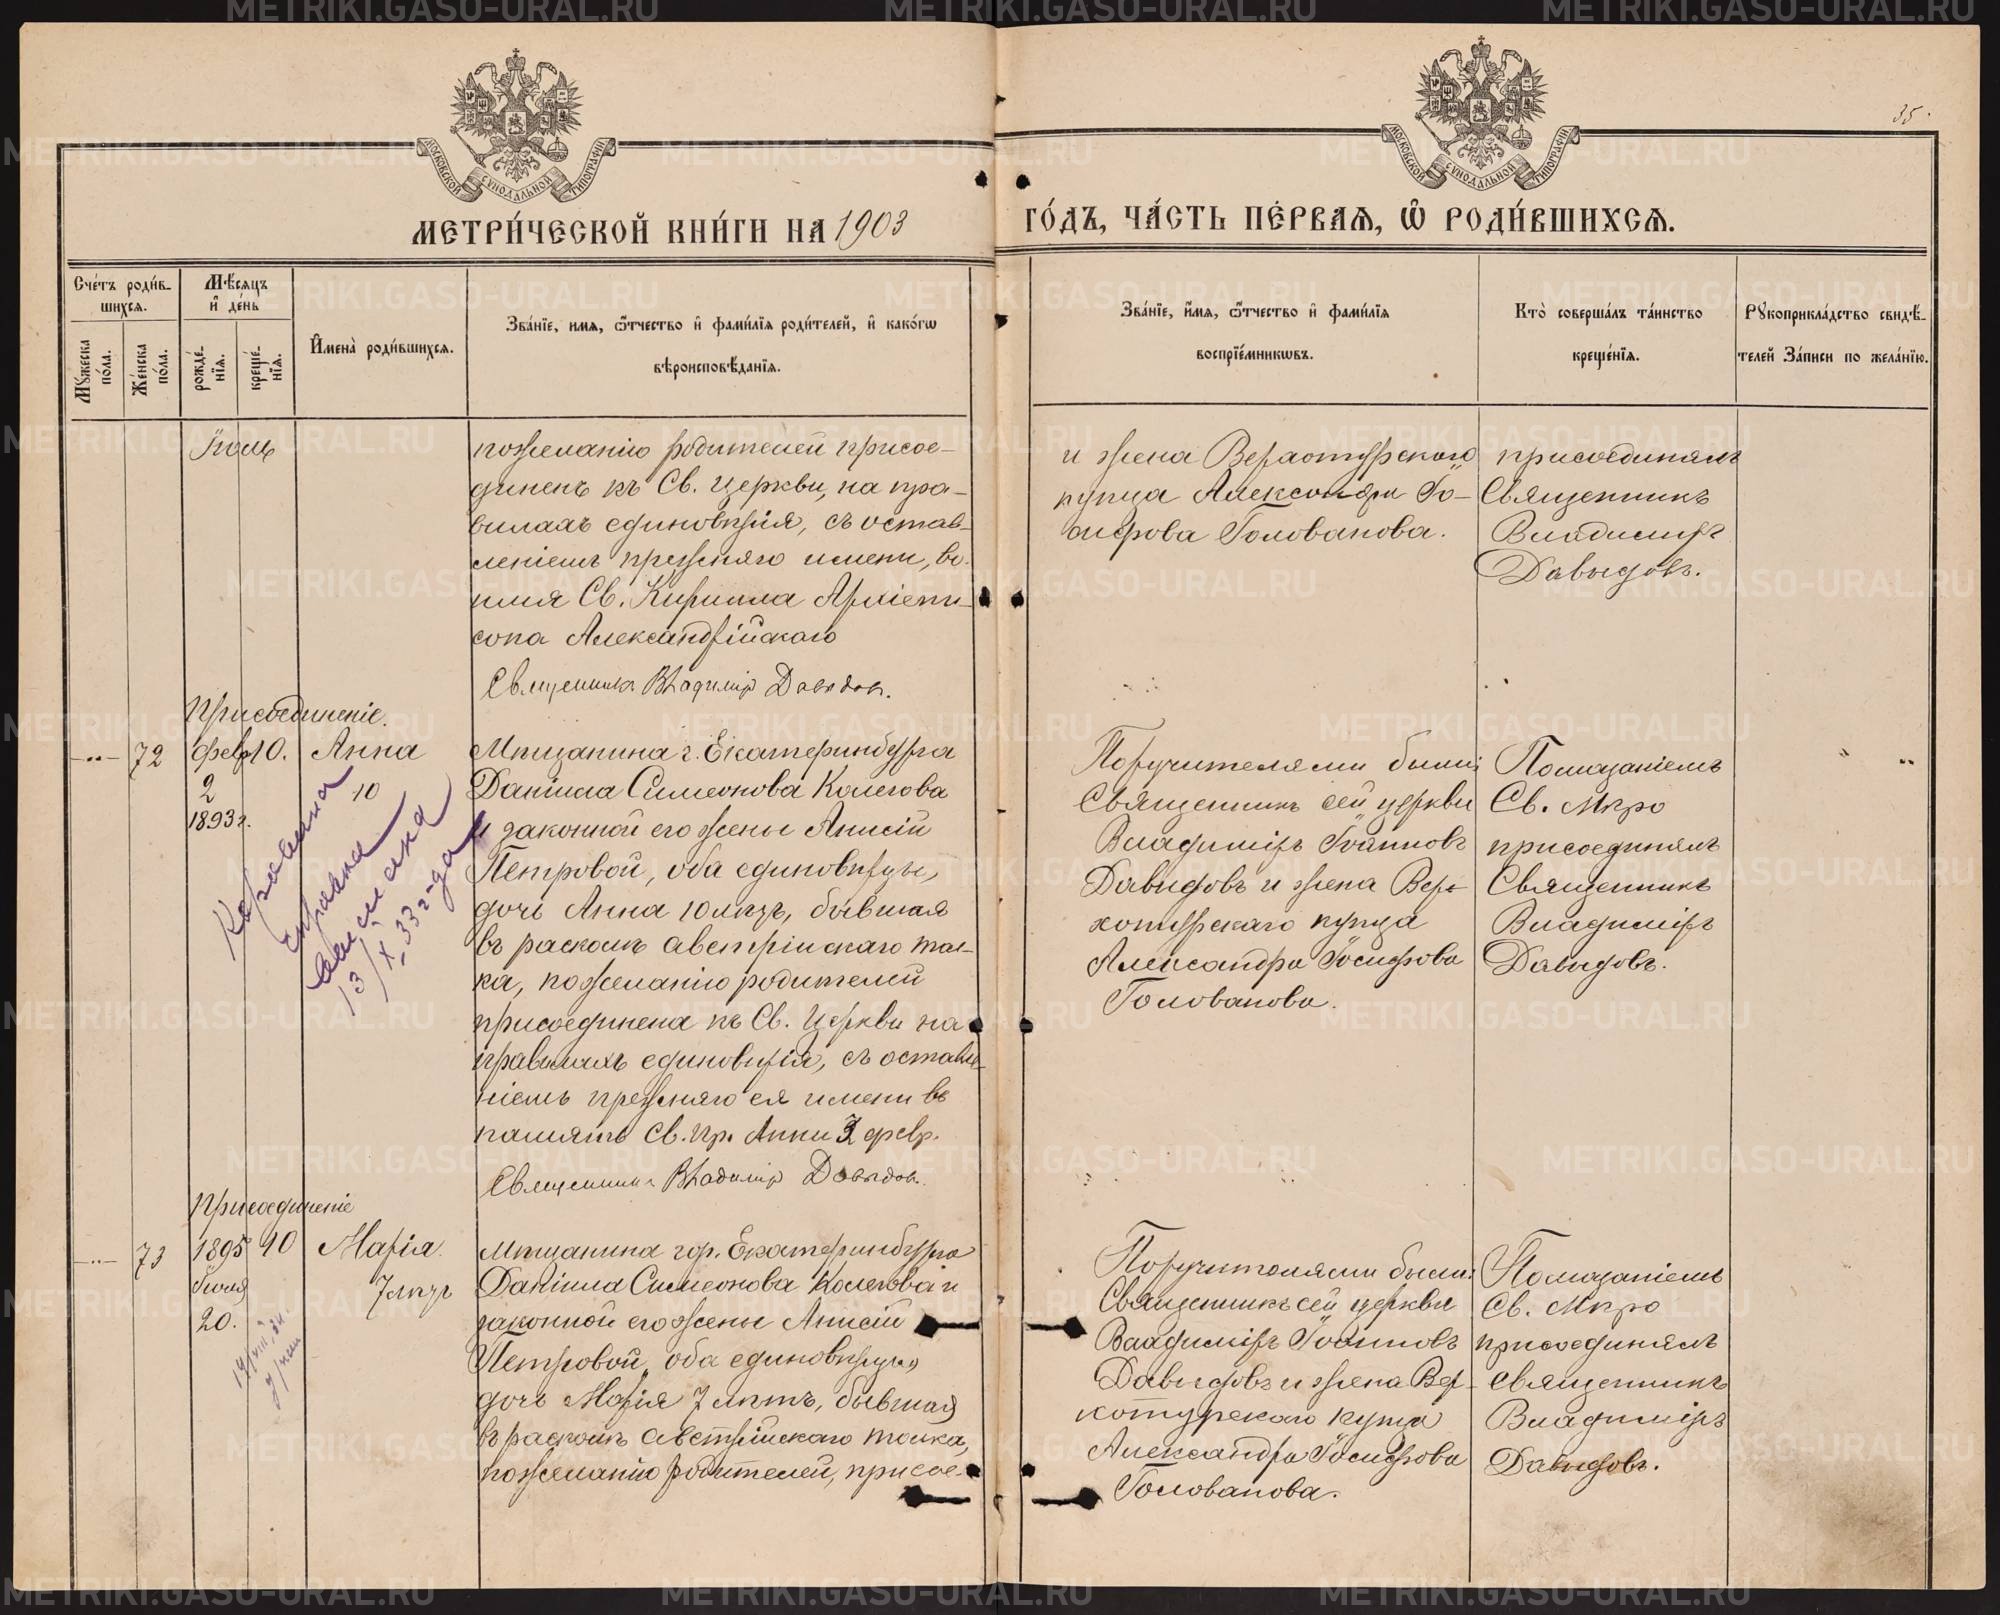 35.
МОСКОВСКОЙ СѴНОДАЛЬНОЙ ТИПОГРАФІИ
МОСКОВСКОЙ СѴНОДАЛЬНОЙ ТИПОГРАФІИ
МЕТРИ́ЧЕСКОЙ КНИ́ГИ НА 1903
ГО́ДЪ, ЧА́СТЬ ПЕ́РВАѦ, Ѽ РОДИ́ВШИХСѦ.
Сче́тъ роди́в-
шихсѧ.
Мꙋ́жеска по́ла.
Же́нска по́ла.
Мѣ́сѧцъ
и҆ де́нь
рожде́-
нїѧ.
креще́-
нїѧ.
И҆мена̀ роди́вшихсѧ.
Зва́нїе, имѧ, ѻ҆́тчество и҆ фами́лїѧ роди́телей, и҆ како́гѡ
вѣроисповѣ́данїѧ.
Зва́нїе, и҆́мѧ, ѻ҆́тчество и҆ фами́лїѧ
воспрїе́мникѡвъ.
Кто̀ соверша́лъ та́инство
креще́нїѧ.
Рꙋкоприкла́дство свидѣ́-
телей За́писи по жела́нїю.
Іюль
по желанію родителей присое-
диненъ къ Св. Церкви, на пра-
вилахъ единовѣрія, съ остав-
леніемъ прежняго имени, во
имя Св. Кирилла Архіепи-
скопа Александрійскаго
Священникъ Владиміръ Давыдовъ.
и жена Верхотурскаго
купца Александра Іо-
сифова Голованова.
присоединялъ
Священникъ
Владиміръ
Давыдовъ.
Присоединеніе.
72
февр.
2
1893 г.
10.
Анна
10
Мѣщанина г. Екатеринбурга
Даніила Симеонова Колегова
и законной его жены Анисіи
Петровой, оба единовѣрцы,
дочь Анна 10 лѣтъ, бывшая
въ расколѣ австрійскаго тол-
ка, по желанію родителей
присоединена къ Св. Церкви на
правилахъ единовѣрія, съ оставле-
ніемъ прежняго ея имени въ
память Св. Пр. Анны 3 февр.
Священникъ Владиміръ Давыдовъ.
справка
13/X-33 г-да
Поручителями были:
Священникъ сей церкви
Владиміръ Іоанновъ
Давыдовъ и жена Вер-
хотурскаго купца
Александра Іосифова
Голованова.
Помазаніемъ
Св. Мѵро
присоединялъ
Священникъ
Владиміръ
Давыдовъ.
Присоединеніе
73
1895
Іюля
20.
10
Марія.
7 лѣтъ
Мѣщанина гор. Екатеринбурга
Даніила Симеонова Колегова и
законной его жены Анисіи
Петровой, оба единовѣрцы,
дочь Марія 7 лѣтъ, бывшая
въ расколѣ австрійскаго толка,
по желанію родителей, присое-
Поручителями были:
Священникъ сей церкви
Владиміръ Іоанновъ
Давыдовъ и жена Вер-
хотурскаго купца
Александра Іосифова
Голованова.
Помазаніемъ
Св. Мѵро
присоединялъ
Священникъ
Владиміръ
Давыдовъ.
METRIKI.GASO-URAL.RU